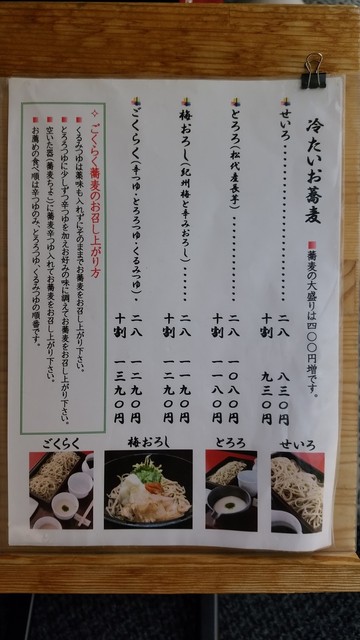 冷たいお蕎麦
■蕎麦の大盛りは四〇〇円増です。
せいろ
二八 八三〇円
十割 九三〇円
とろろ(松代産長芋)
二八 一〇八〇円
十割 一一八〇円
梅おろし(紀州梅と辛みおろし)
二八 一一九〇円
十割 一二九〇円
ごくらく(辛つゆ・とろろつゆ・くるみつゆ)
二八 一二九〇円
十割 一三九〇円
ごくらく蕎麦のお召し上がり方
■くるみつゆは薬味も入れずにそのままでお蕎麦をお召し上がり下さい。
■とろろつゆに少しずつ辛つゆを加えお好みの味に調えてお蕎麦をお召し上がり下さい。
■空いた器(蕎麦ちょこ)に蕎麦辛つゆ入れてお蕎麦をお召し上がり下さい。
■お薦めの食べ順は辛つゆのみ、とろろつゆ、くるみつゆの順番です。
せいろ
とろろ
梅おろし
ごくらく